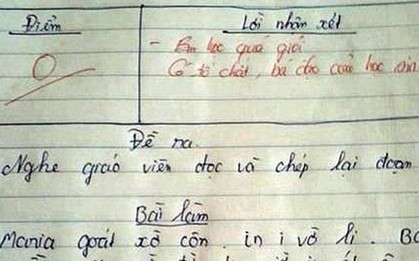 Điểm
Lời nhận xét
0
- Em học quá giỏi
Có tố chất, bá đạo của học sin
Đề ra
Nghe giáo viên đọc và chép lại đoạn
Bài làm
Mania goát xờ côn. in i vờ li. Bo